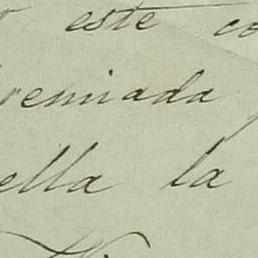 este co
remiada
ella la